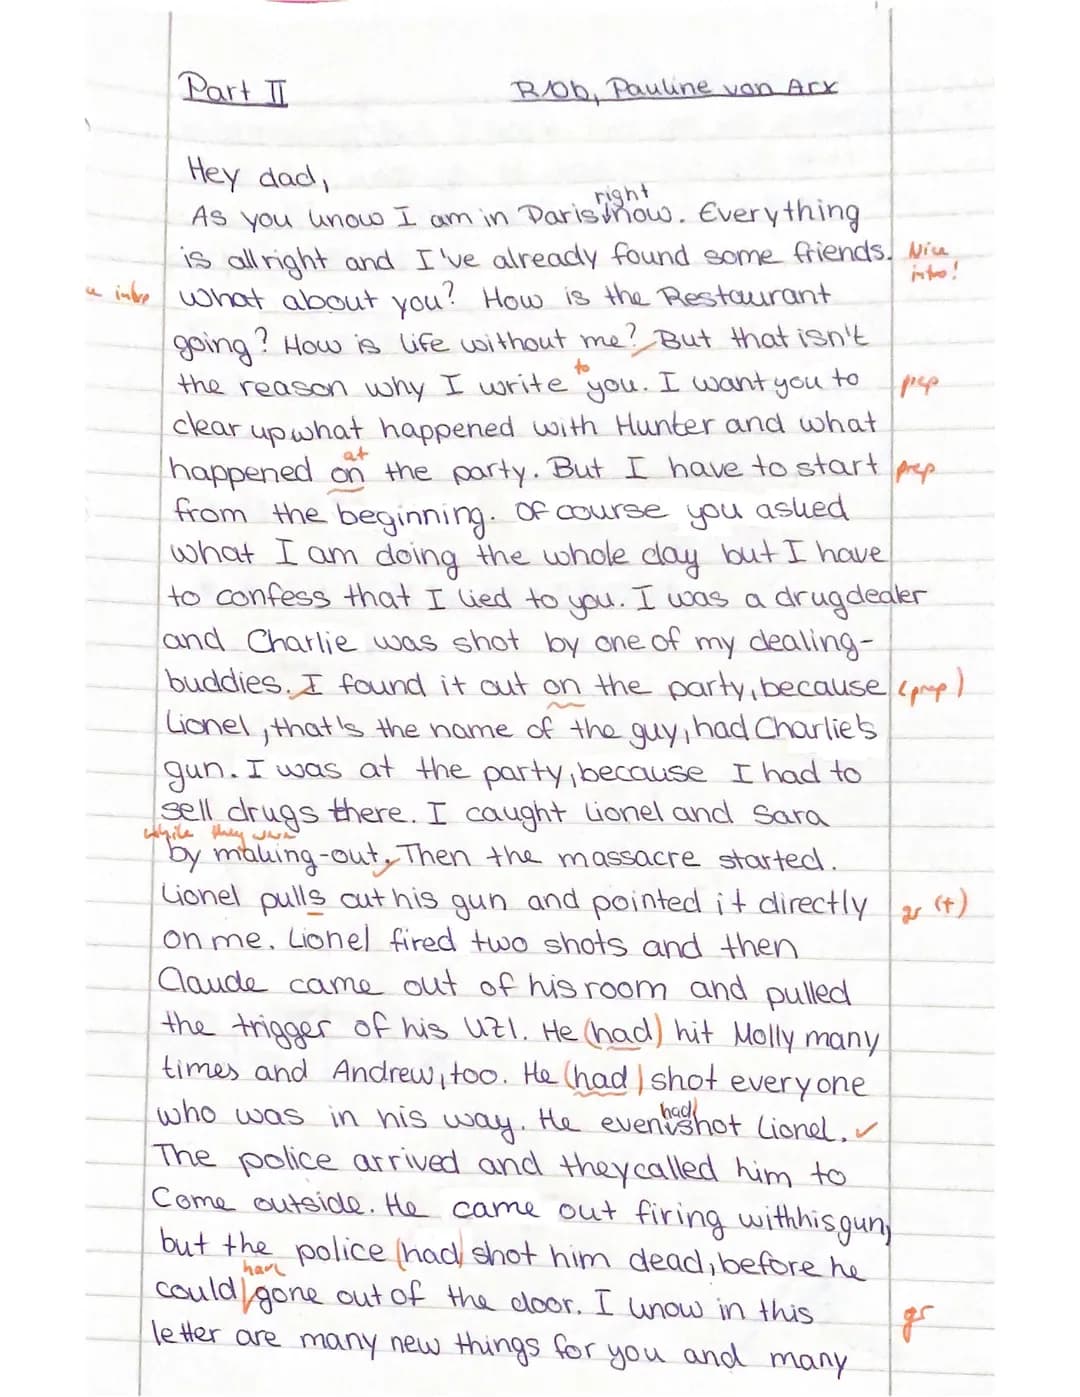 Part II
R1Ob, Pauline von Arx
Hey dad,
right
As you know I am in Paris now. Everything
is allright and I've already found some friends. Nice
intro!
what about you? How is the Restaurant
going? How is life without me? But that isn't
to
the reason why I write you. I want you to prep
clear up what happened with Hunter and what
at
happened on the party. But I have to start prep
from the beginning. Of course you asked
what I am doing the whole day but I have
to confess that I lied to you. I was a drugdealer
and Charlie was shot by one of my dealing-
buddies. I found it out on the party, because (prep)
Lionel, that's the name of the guy, had Charlie's
gun. I was at the party, because I had to
sell drugs there. I caught Lionel and Sara
while they were
by making-out. Then the massacre started.
Lionel pulls out his gun and pointed it directly gr (t)
on me. Lionel fired two shots and then
Claude came out of his room and pulled
the trigger of his UZI. He (had) hit Molly many
times and Andrew, too. He (had) shot everyone
who was in his way. He even shot Lionel.
had
The police arrived and they called him to
Come outside. He came out firing with his gun,
but the police (had) shot him dead, before he
have
could gone out of the door. I know in this gr
letter are many new things for you and many